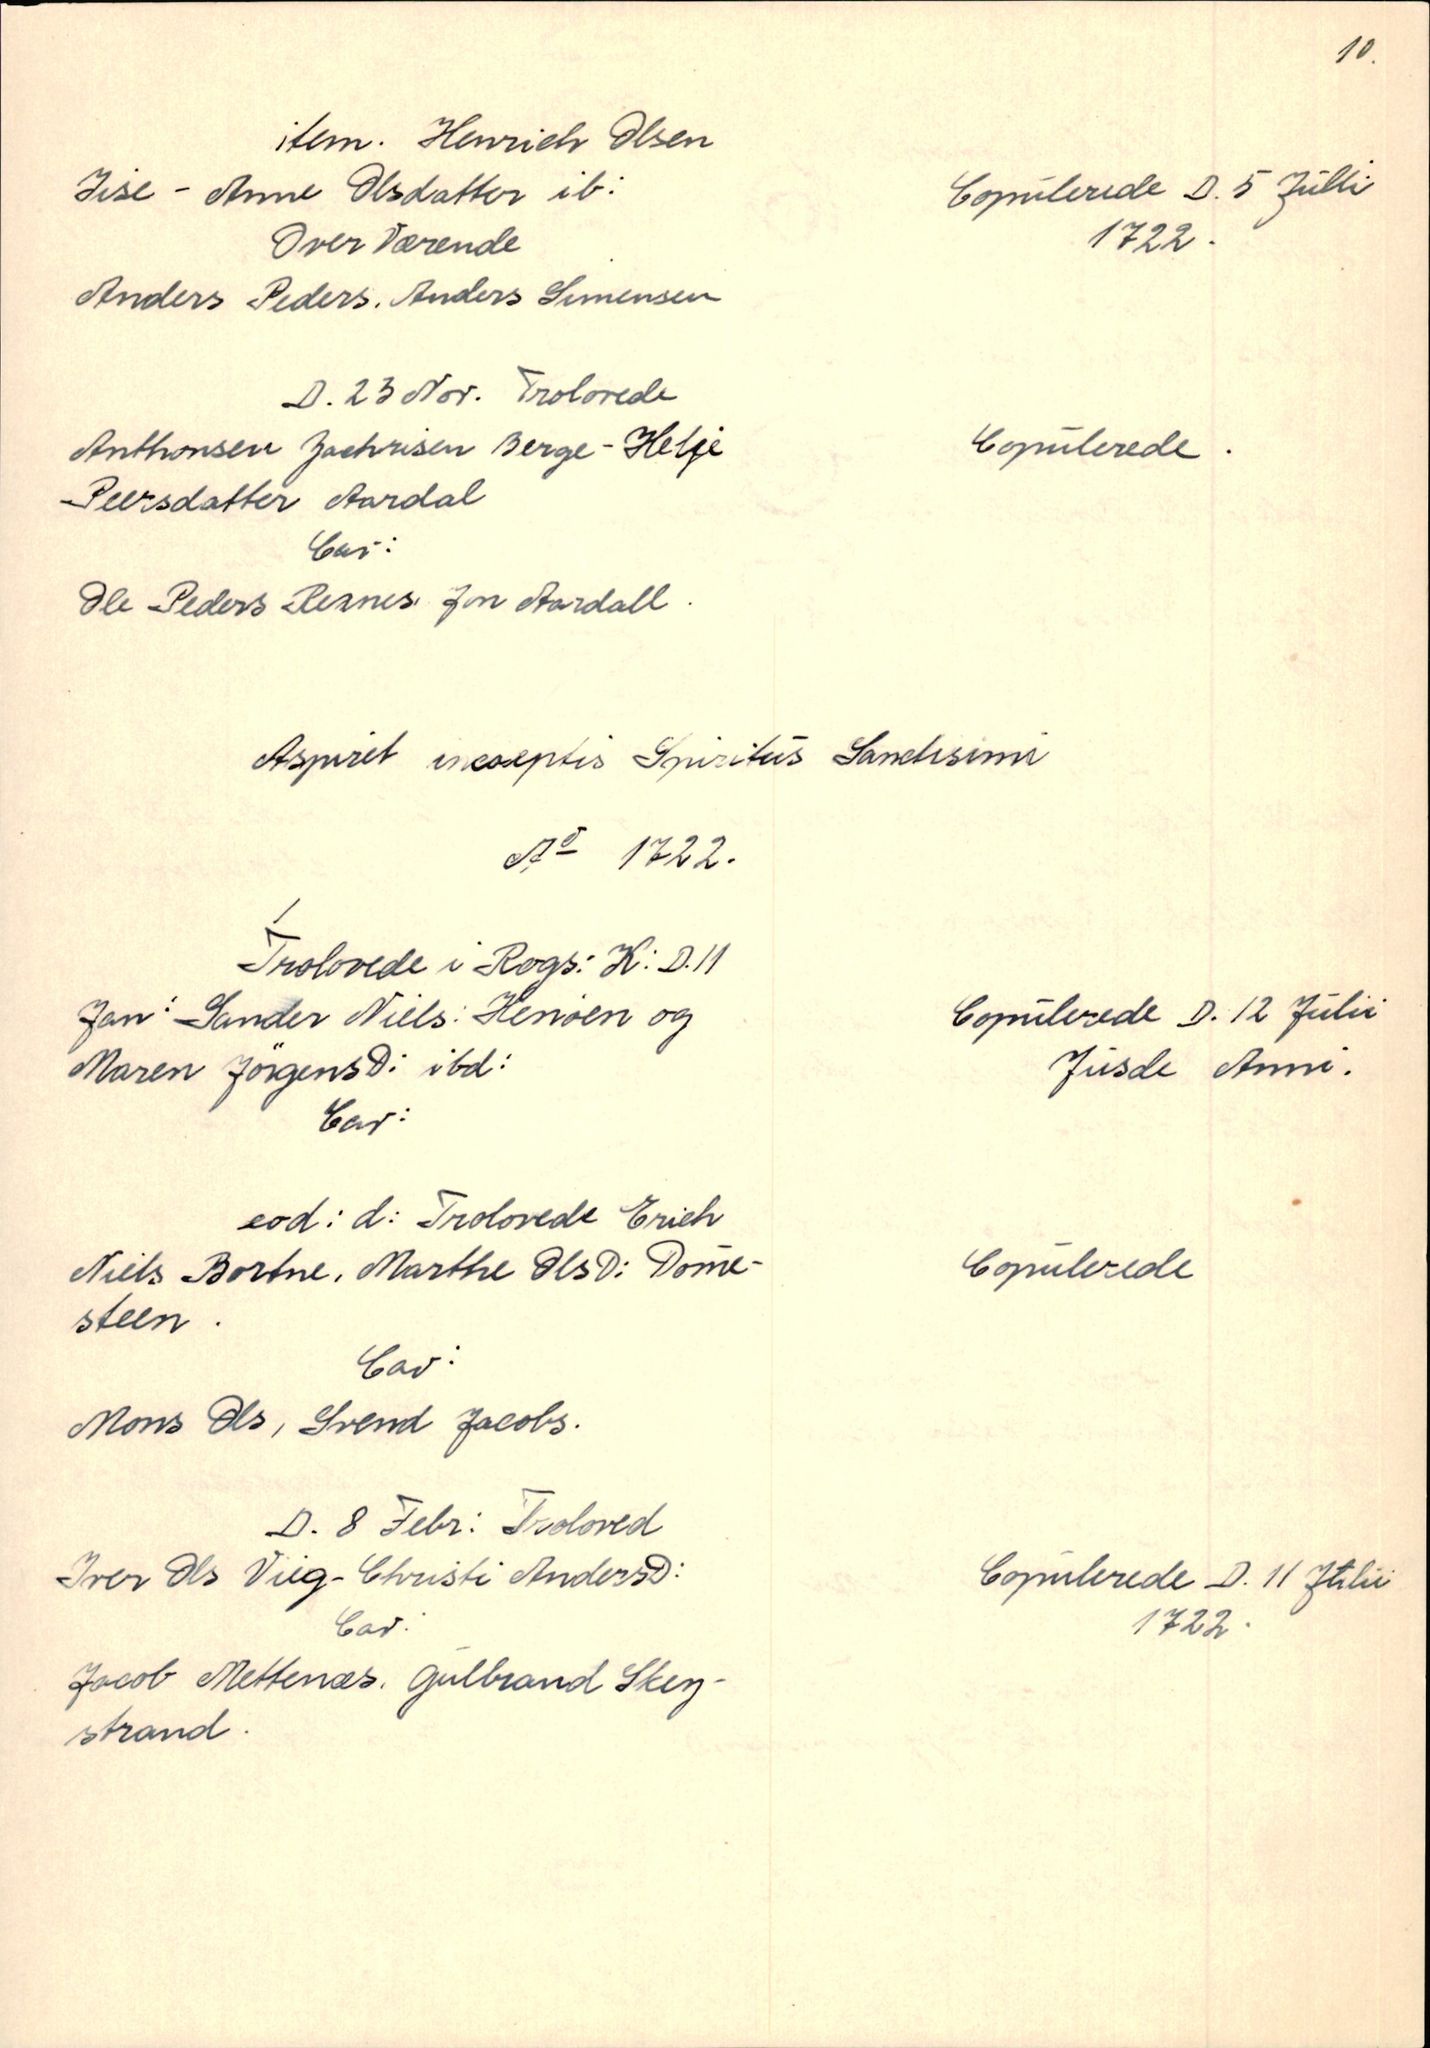 10.
item. Henrich Olsen
Jise - Anne Olsdatter ib:
Over Værende
Anders Peders. Anders Simensen
Copulerede D. 5 Julii
1722.
D. 23 Nov. Trolovede
Anthonsen Zachrisen Berge - Helje
Peersdatter Aardal
Copulerede.
Cav:
Ole Peders Rexnes. Jon Aardall.
Aspiret incoeptis Spiritus Sanctisimi
Ao 1722.
Trolovede i Rogs: K: D. 11
Jan: Sander Niels: Henöen og
Maren JörgensD: ibd:
Copulerede D. 12 Julii
Jusde Anni.
Cav:
eod: d: Trolovede Erich
Niels Bortne, Marthe OlsD: Dome-
steen.
Copulerede
Cav:
Mons Ols, Svend Jacobs.
D. 8 Febr: Troloved
Iver Ols Viig - Christi AndersD:
Copulerede D. 11 Julii
1722.
Cav:
Jacob Mettenæs. Gulbrand Skey-
strand.